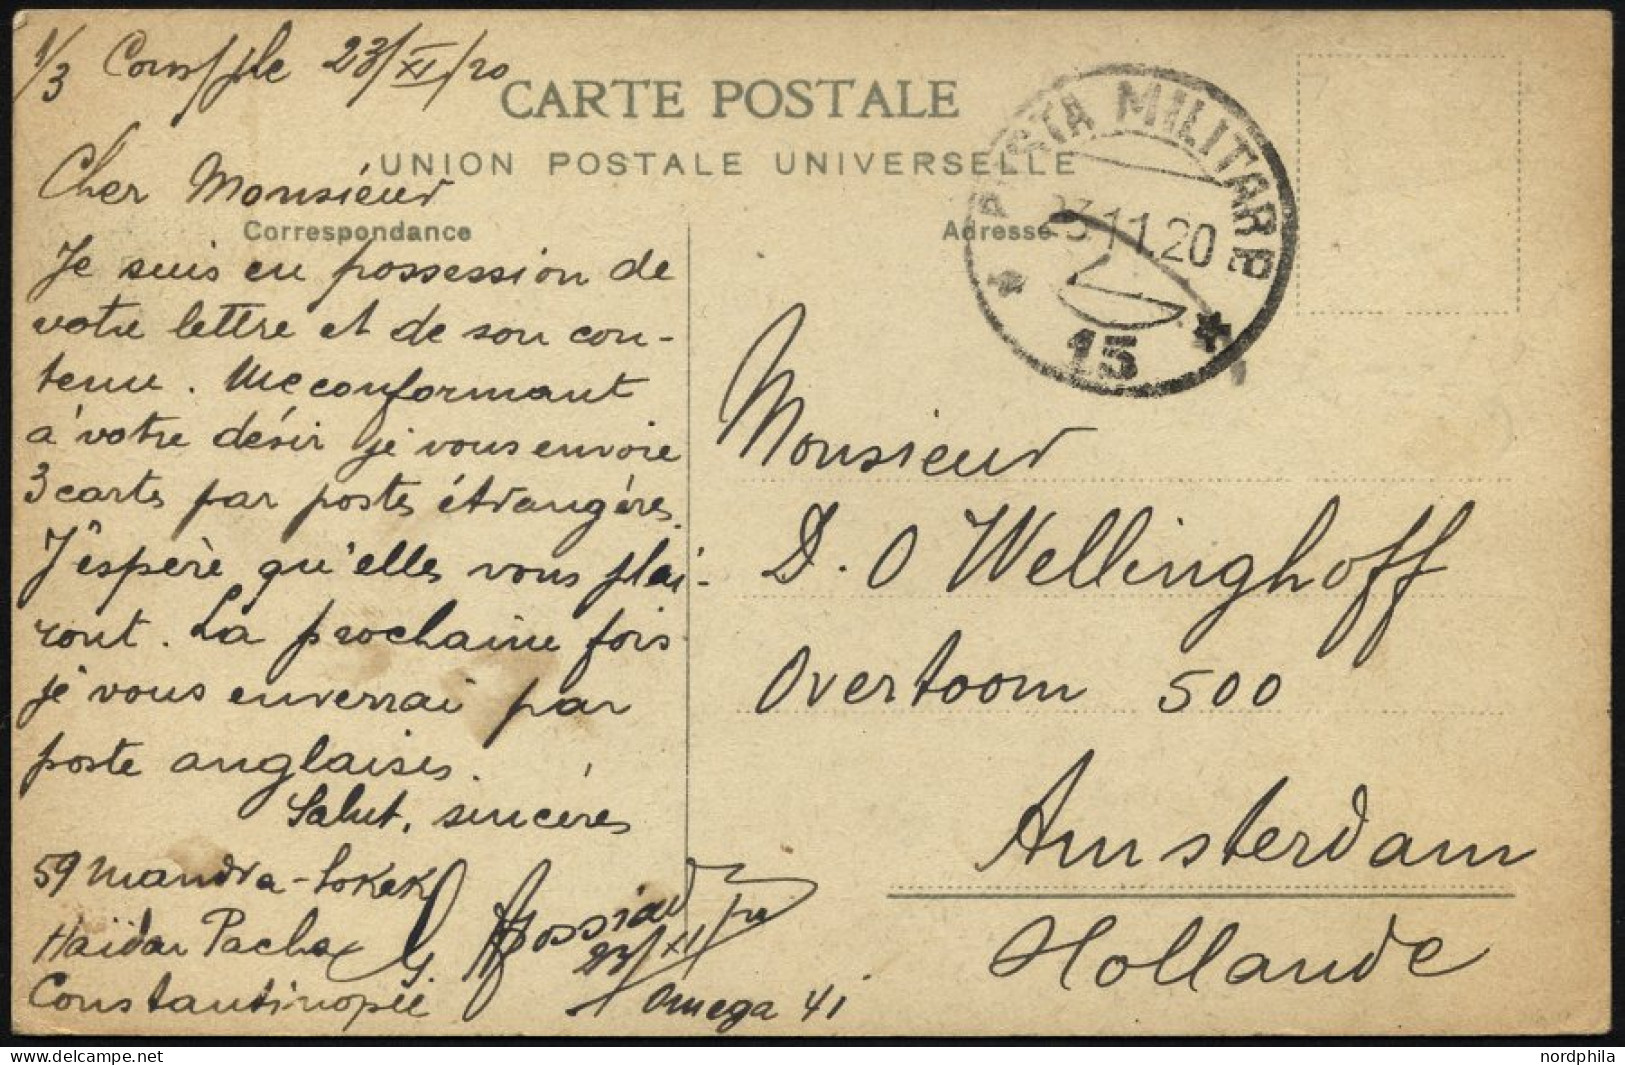 1/3 Cons/ple 23/XI/20
CARTE POSTALE
UNION POSTALE UNIVERSELLE
Correspondance
Adresse
POSTA MILITARE
23.11.20
15
Cher Monsieur
Je suis en possession de
votre lettre et de son con-
tenu. Me conformant
à votre désir je vous envoie
3 cartes par postes étrangères.
J'espère qu'elles vous plai-
ront. La prochaine fois
je vous enverrai par
poste anglaises.
Salut, sincères
59 Mandra-Sokak
Haïdar Pacha
Constantinople
23/XI/20
Omega 41
Monsieur
D. O Wellinghoff
Overtoom 500
Amsterdam
Hollande
nordphila